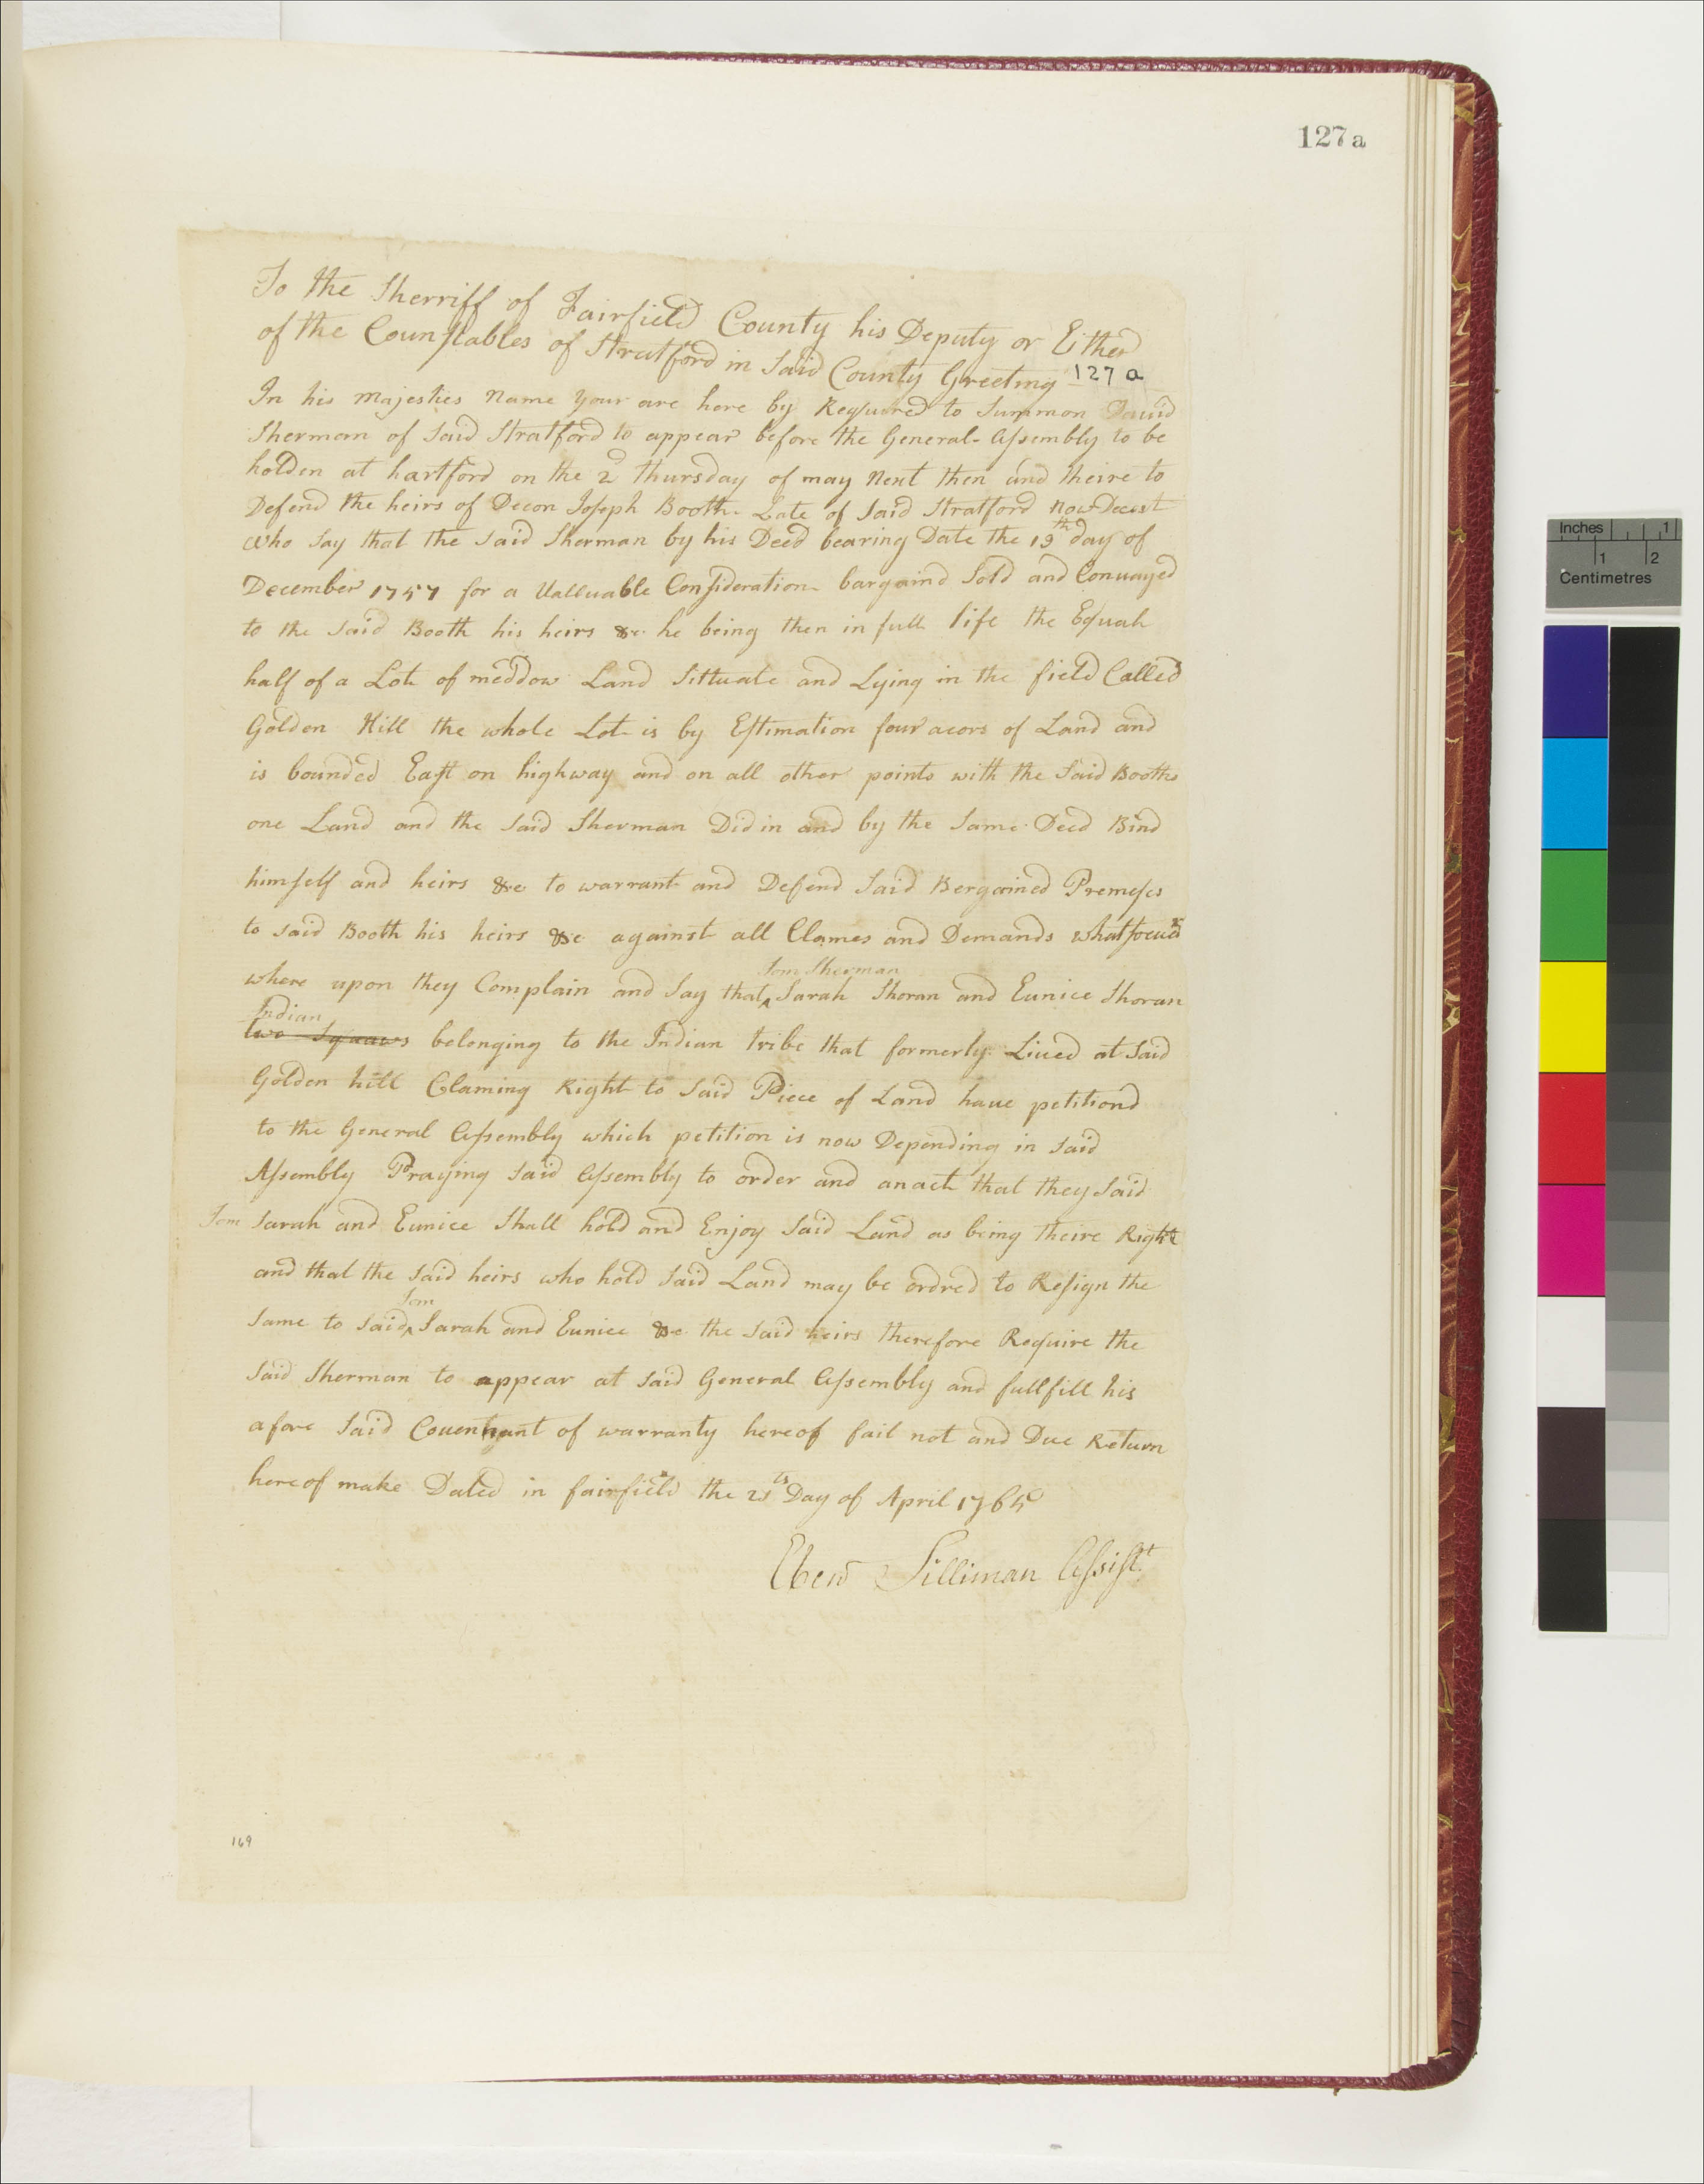 127a
To the Sherriff of Fairfield County his Deputy or Either
of the Counstables of Stratford in Said County Greeting 127 a
In his Majesties Name Your are here by Required to Summon David
Sherman of Said Stratford to appear before the General Assembly to be
holden at hartford on the 2d thursday of may Next then and theire to
Defend the heirs of Decon Joseph Booth Late of Said Stratford Now Decest
who Say that the Said Sherman by his Deed bearing Date the 19th day of
December 1757 for a Valluable Consideration bargaind Sold and Convayed
to the Said Booth his heirs &c he being then in full life the Equal
half of a Lot of meddow Land Sittuate and Lying in the field Called
Golden Hill the whole Lot is by Estimation four acors of Land and
is bounded East on highway and on all other points with the Said Booths
one Land and the Said Sherman Did in and by the Same Deed Bind
himself and heirs &c to warrant and Defend Said Bergained Premeses
to said Booth his heirs &c against all Clames and Demands whatsoever
Tom Sherman
where upon they Complain and Say that ‸ Sarah Shoran and Eunice Shoran
Indian
two Squaws belonging to the Indian tribe that formerly Lived at Said
Golden hill Claming Right to Said Piece of Land have petitiond
to the General Assembly which petition is now Depending in Said
Assembly Praying Said Assembly to order and anact that they Said
Tom Sarah and Eunice Shall hold and Enjoy Said Land as being theire Right
and that the Said heirs who hold Said Land may be ordred to Resign the
Tom
Same to Said ‸ Sarah and Eunice &c the Said heirs therefore Require the
Said Sherman to appear at Said General Assembly and fullfill his
afore Said Covenhant of warranty hereof fail not and Due Return
hereof make Dated in fairfield the Day of April 1765
Ebenr Silliman Assistt
169
Inches 1
1 2
Centimetres